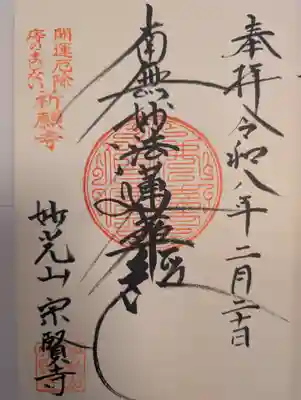 奉拝 令和八年二月二十日
南無妙法蓮華経
開運厄除
赤のまじない 祈願寺
妙光山 宗賢寺